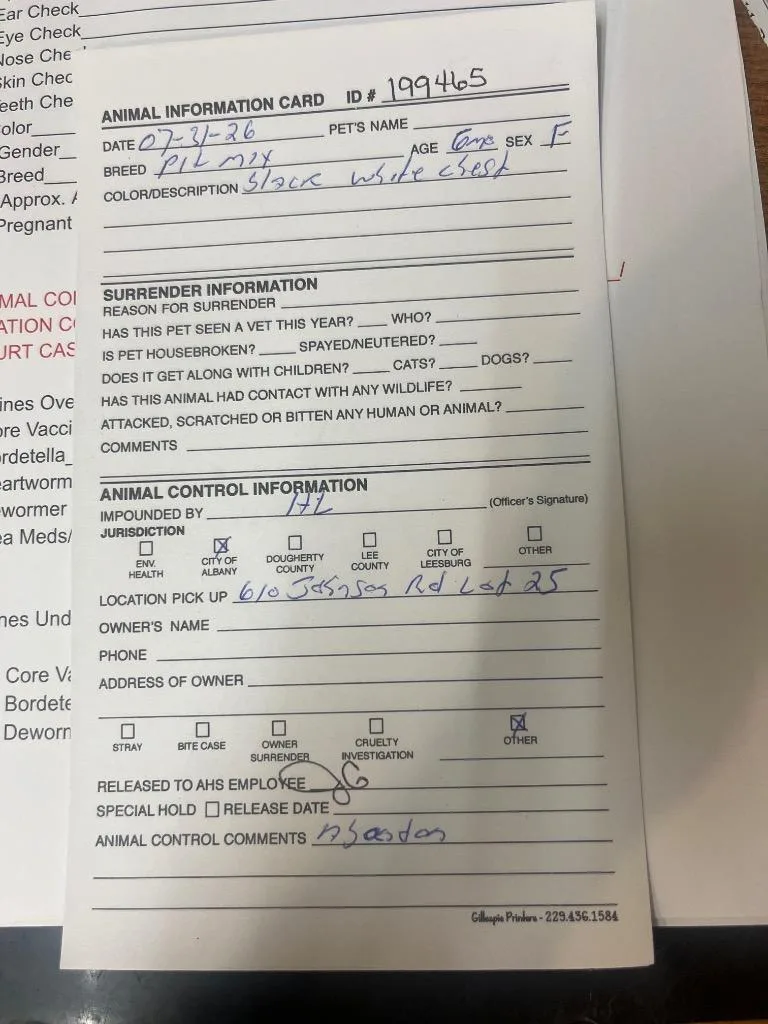 Ear Check
Eye Check
Nose Che
Skin Chec
eeth Che
olor
Gender
Breed
Approx. A
Pregnant
MAL CO
ATION C
URT CAS
ines Ove
ore Vacci
ordetella
eartworm
wormer
ea Meds/
nes Und
Core Va
Bordete
Deworn
ANIMAL INFORMATION CARD ID # 199465
DATE 07-31-26 PET'S NAME
BREED Pit mix AGE 6mo SEX F
COLOR/DESCRIPTION black white chest
SURRENDER INFORMATION
REASON FOR SURRENDER
HAS THIS PET SEEN A VET THIS YEAR? WHO?
IS PET HOUSEBROKEN? SPAYED/NEUTERED?
DOES IT GET ALONG WITH CHILDREN? CATS? DOGS?
HAS THIS ANIMAL HAD CONTACT WITH ANY WILDLIFE?
ATTACKED, SCRATCHED OR BITTEN ANY HUMAN OR ANIMAL?
COMMENTS
ANIMAL CONTROL INFORMATION
IMPOUNDED BY (Officer's Signature)
JURISDICTION
ENV. HEALTH CITY OF ALBANY DOUGHERTY COUNTY LEE COUNTY CITY OF LEESBURG OTHER
LOCATION PICK UP 610 Johnson Rd Lot 25
OWNER'S NAME
PHONE
ADDRESS OF OWNER
STRAY BITE CASE OWNER SURRENDER CRUELTY INVESTIGATION OTHER
RELEASED TO AHS EMPLOYEE
SPECIAL HOLD RELEASE DATE
ANIMAL CONTROL COMMENTS Abandon
Gillespie Printers - 229.436.1584